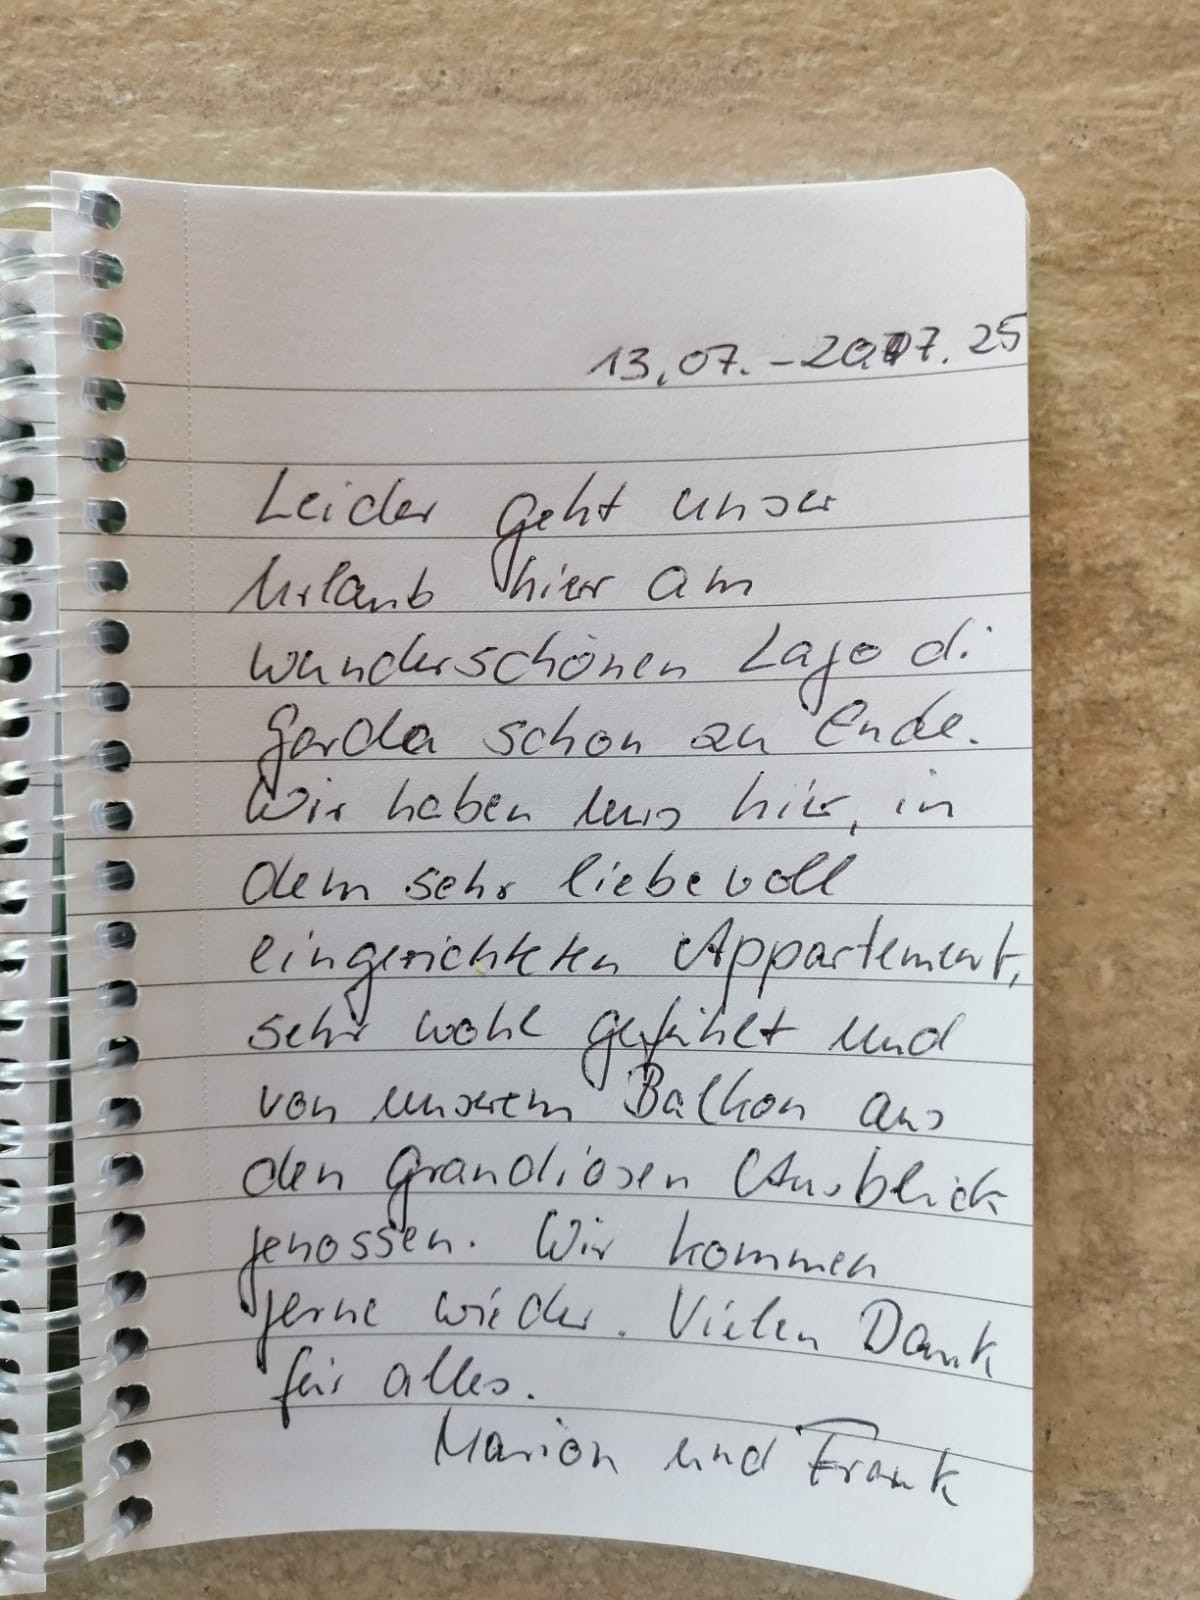 13.07. - 20.07.25
Leider geht unser
Urlaub hier am
wunderschönen Lago di
Garda schon zu Ende.
Wir haben uns hier, in
dem sehr liebevoll
eingerichteten Appartement,
sehr wohl gefühlt und
von unserem Balkon aus
den grandiosen Ausblick
genossen. Wir kommen
gerne wieder. Vielen Dank
für alles.
Marion und Frank